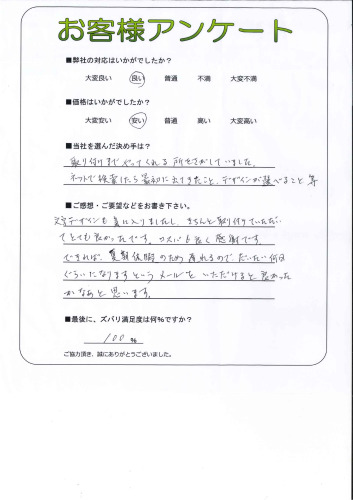 お客様アンケート
■弊社の対応はいかがでしたか？
大変良い 良い 普通 不満 大変不満
■価格はいかがでしたか？
大変安い 安い 普通 高い 大変高い
■当社を選んだ決め手は？
取り付けまでやってくれる所をさがしていました。
ネットで検索したら最初に出てきたこと、デザインが選べること 等
■ご感想・ご要望などをお書き下さい。
文字デザインも気に入りましたし、きちんと取り付けていただい
てとても良かったです。コスパも良く感謝です。
できれば、夏期休暇のため遅れるので、だいたい何日
ぐらいになりますというメールをいただけると良かった
かなあと思います。
■最後に、ズバリ満足度は何％ですか？
100 %
ご協力頂き、誠にありがとうございました。